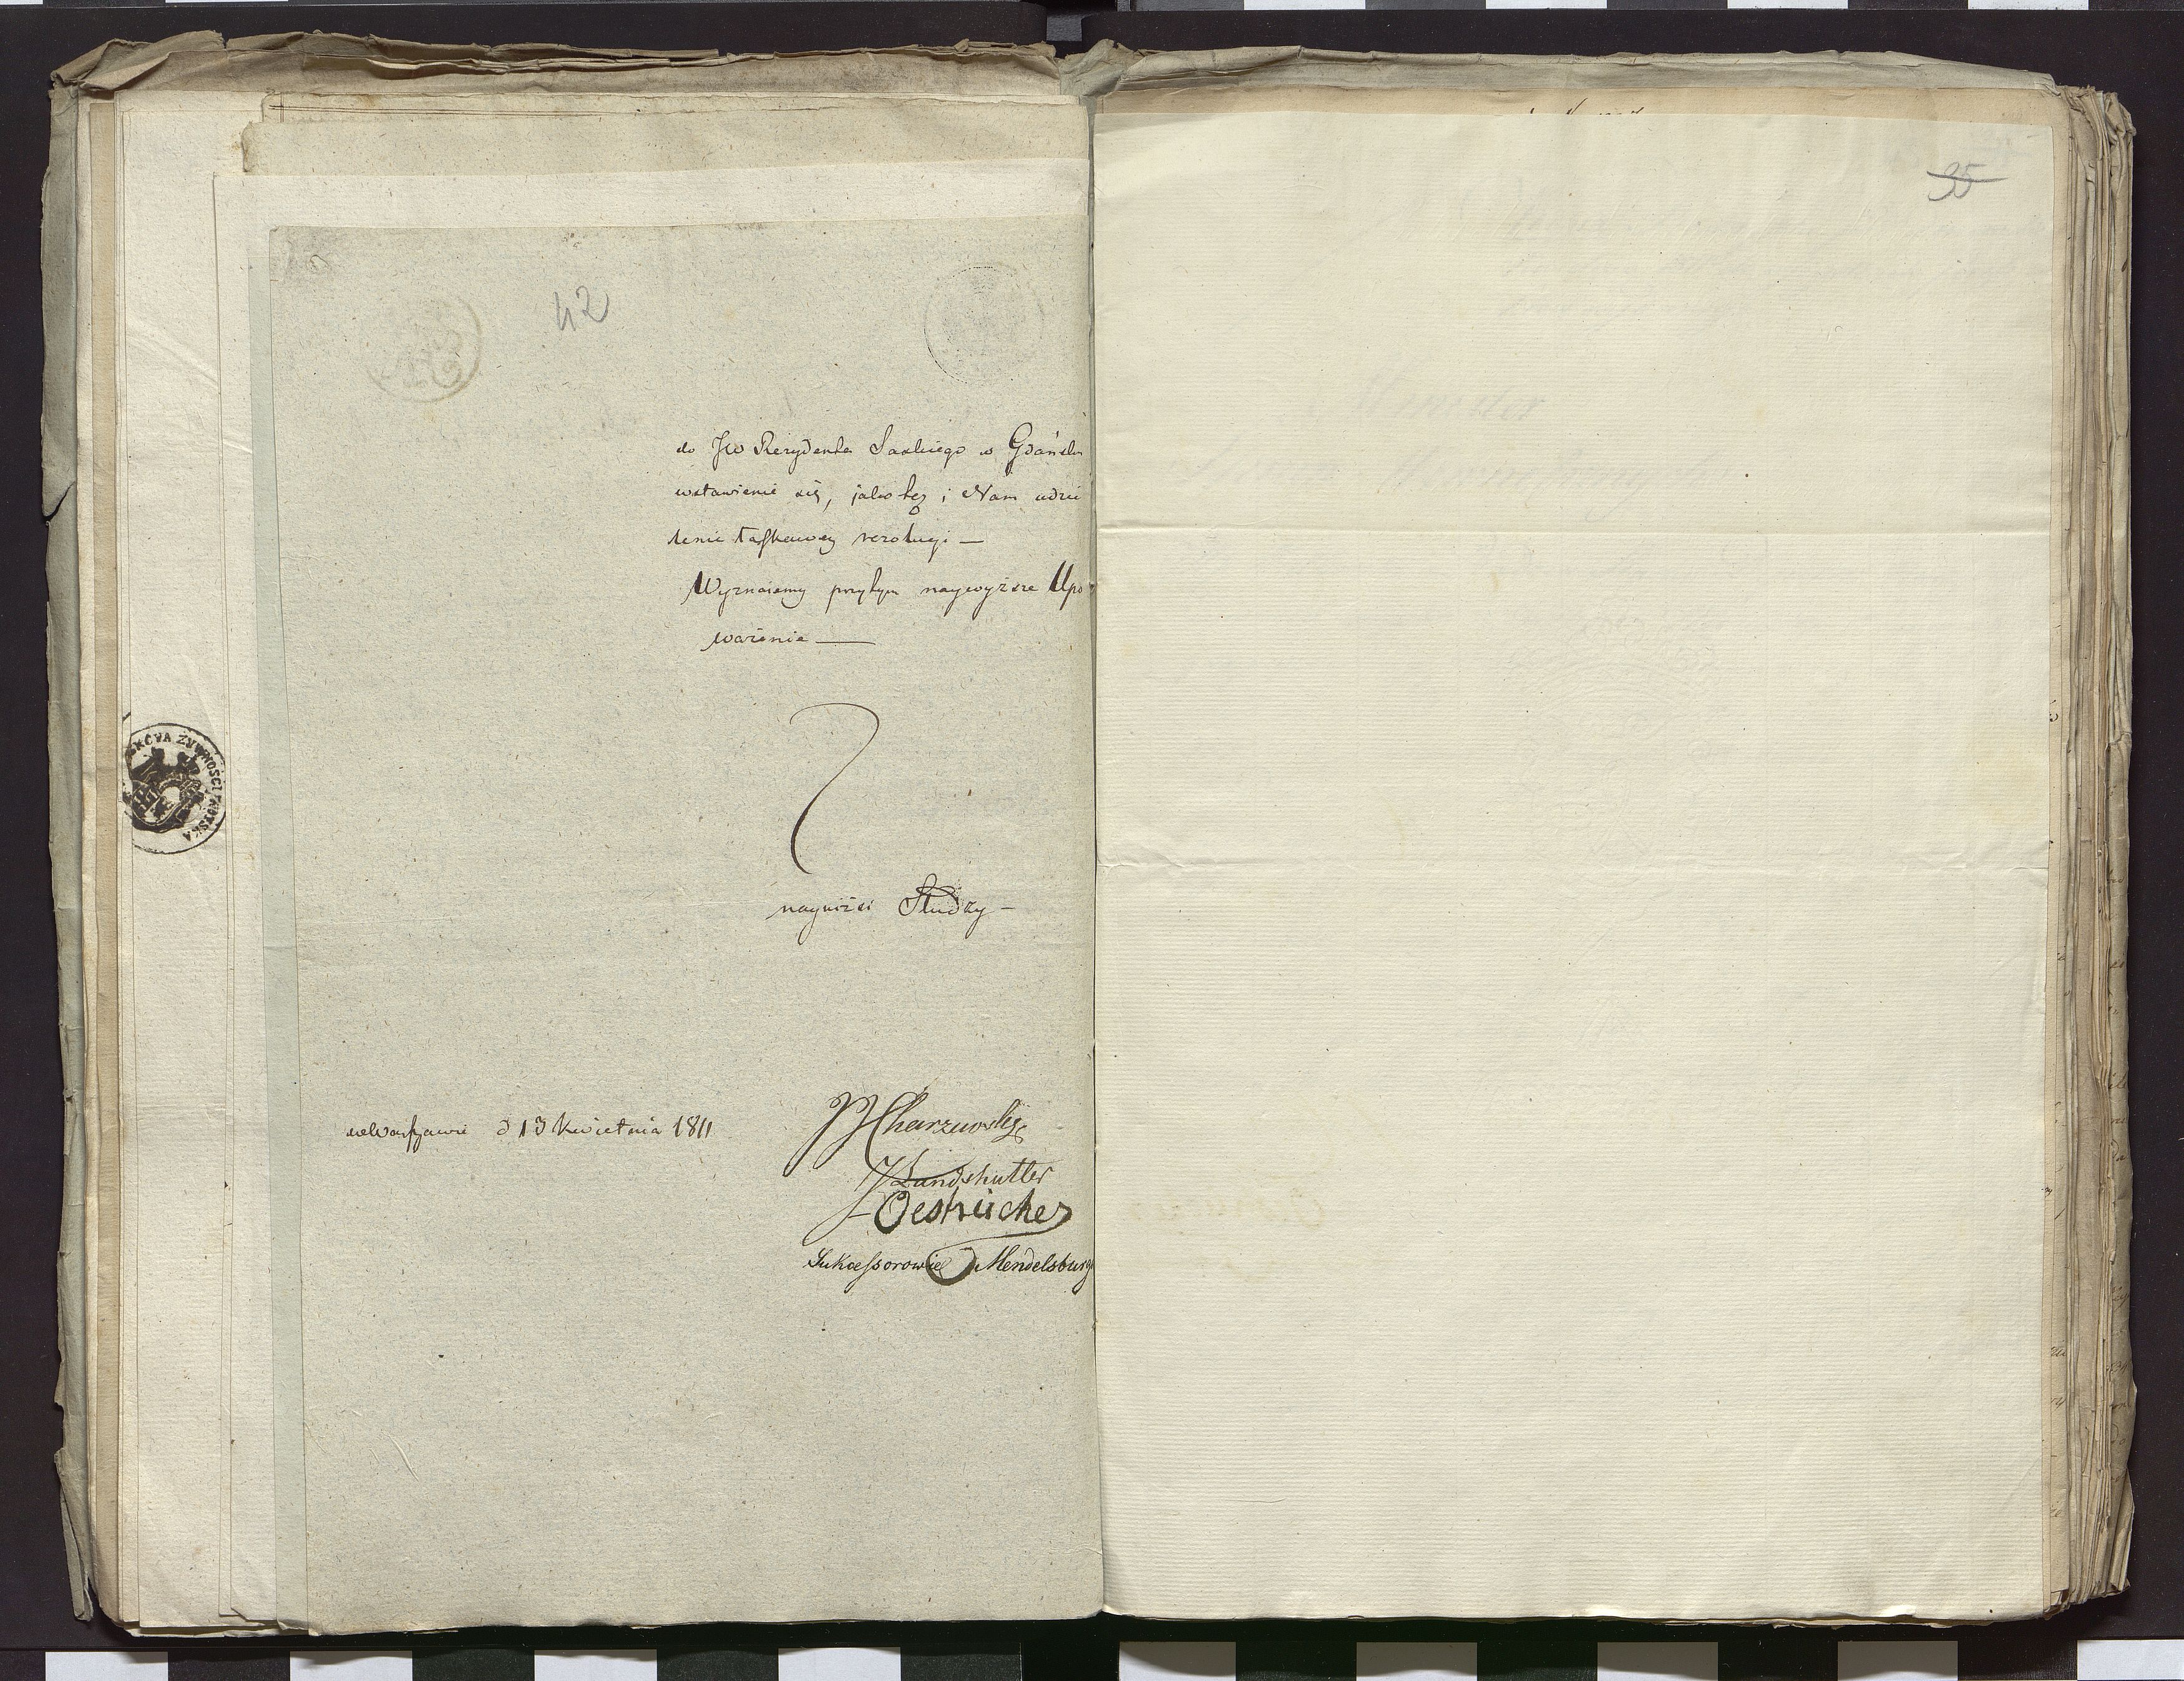 42
do JW Rezydenta Saskiego w Gdańsku
wstawienie się, jako też i Nam udzie
lenie łaskawey rezolucyi —
Wyznaiemy przytym naywyższe Upo
ważenie —
nayniżsi Słudzy —
w Warszawie d 13 Kwietnia 1811
Landshutter
Oestreicher
Sukcessorowie Mendelsburg
35